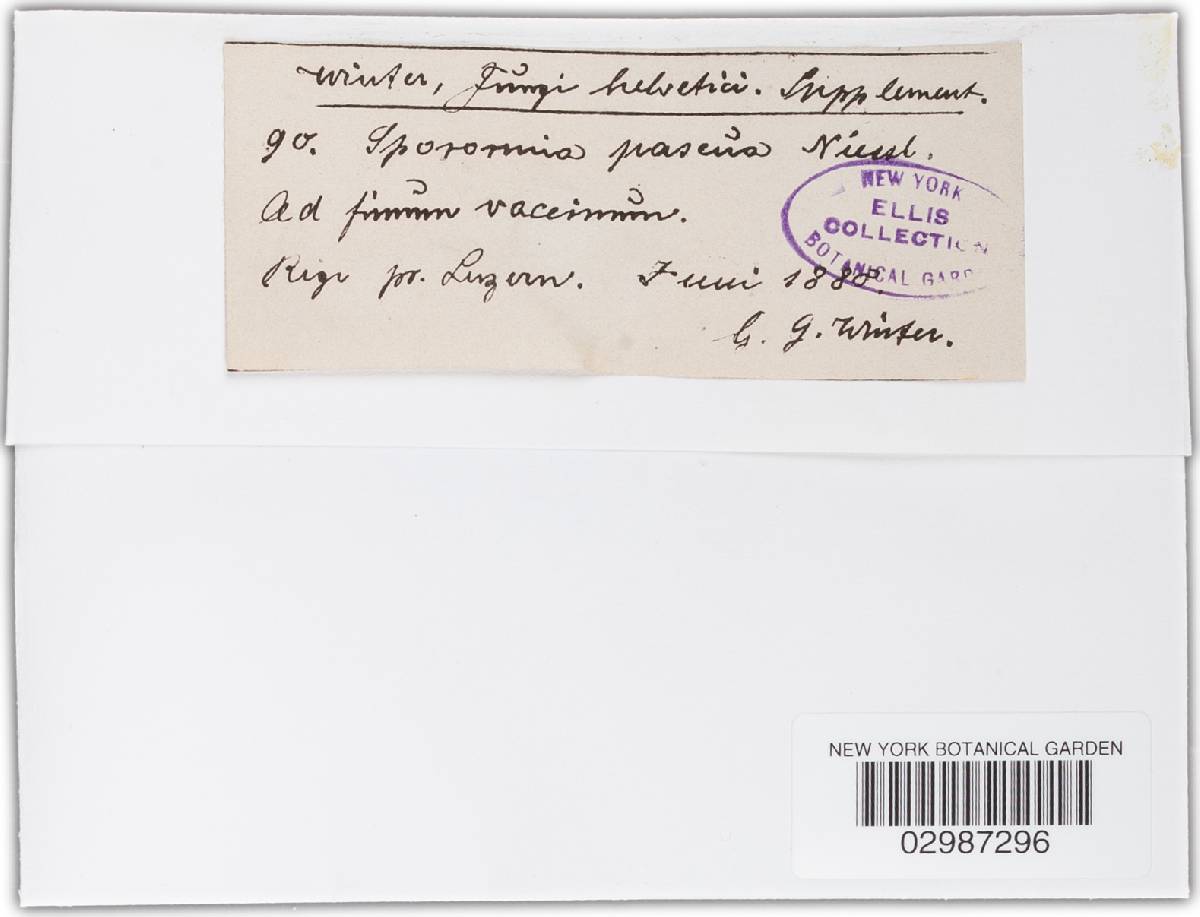 Winter, Fungi helvetici. Supplement.
90. Sporormia pascua Niessl.
Ad fimum vaccinum.
Rigi pr. Luzern. Juni 1880.
G. Winter.
NEW YORK
ELLIS
COLLECTION
BOTANICAL GARD
NEW YORK BOTANICAL GARDEN
02987296